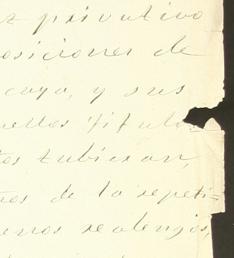 privativo
osiciones de
caya, y sus
uellos titulo
tos tubiesen,
nos de la repeti-
enos realengos,